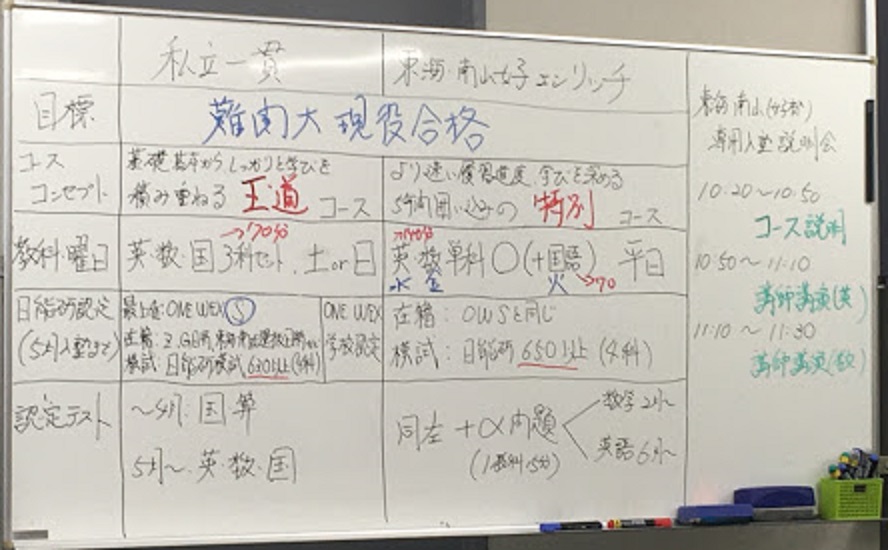 私立一貫
東海・南山女子エンリッチ
目標
難関大現役合格
コース
コンセプト
基礎基本からしっかりと学びを
積み重ねる 王道 コース
より速い 進度、学びを求める
囲い込みの 特別 コース
教科・曜日
→170分
英・数・国 3科セット、土or日
英・数 単科○(+国語) 平日
水 金 火 →70
日能研認定
(5月入塾まで)
最上位:ONE WEX Ⓢ
在籍:
模試:日能研模試 630以上(4科)
ONE WEX
学校認定
在籍:OWSと同じ
模試:日能研 650以上(4科)
認定テスト
〜4月:国算
5月〜、英・数・国
同左+α内題
数学2月〜
英語6月〜
東海南山
専用入塾説明会
10:20〜10:50
コース説明
10:50〜11:10
講師講演(英)
11:10〜11:30
講師講演(数)